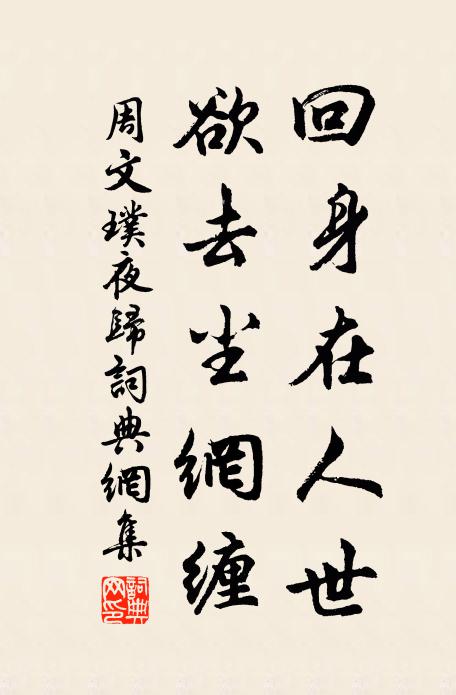 回身在人世
欲去尘網纏
周文璞夜歸詞典網集
詞典网印